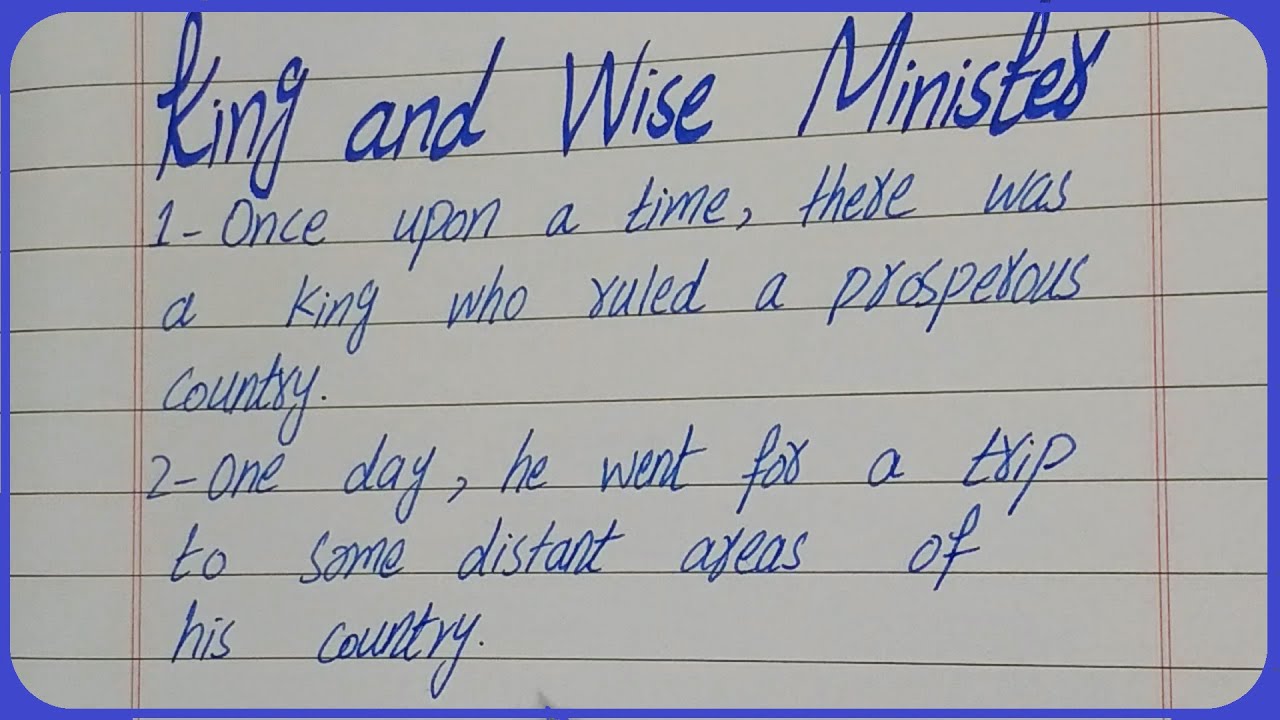 King and Wise Minister
1-Once upon a time, there was
a king who ruled a prosperous
country.
2-One day, he went for a trip
to some distant areas of
his country.